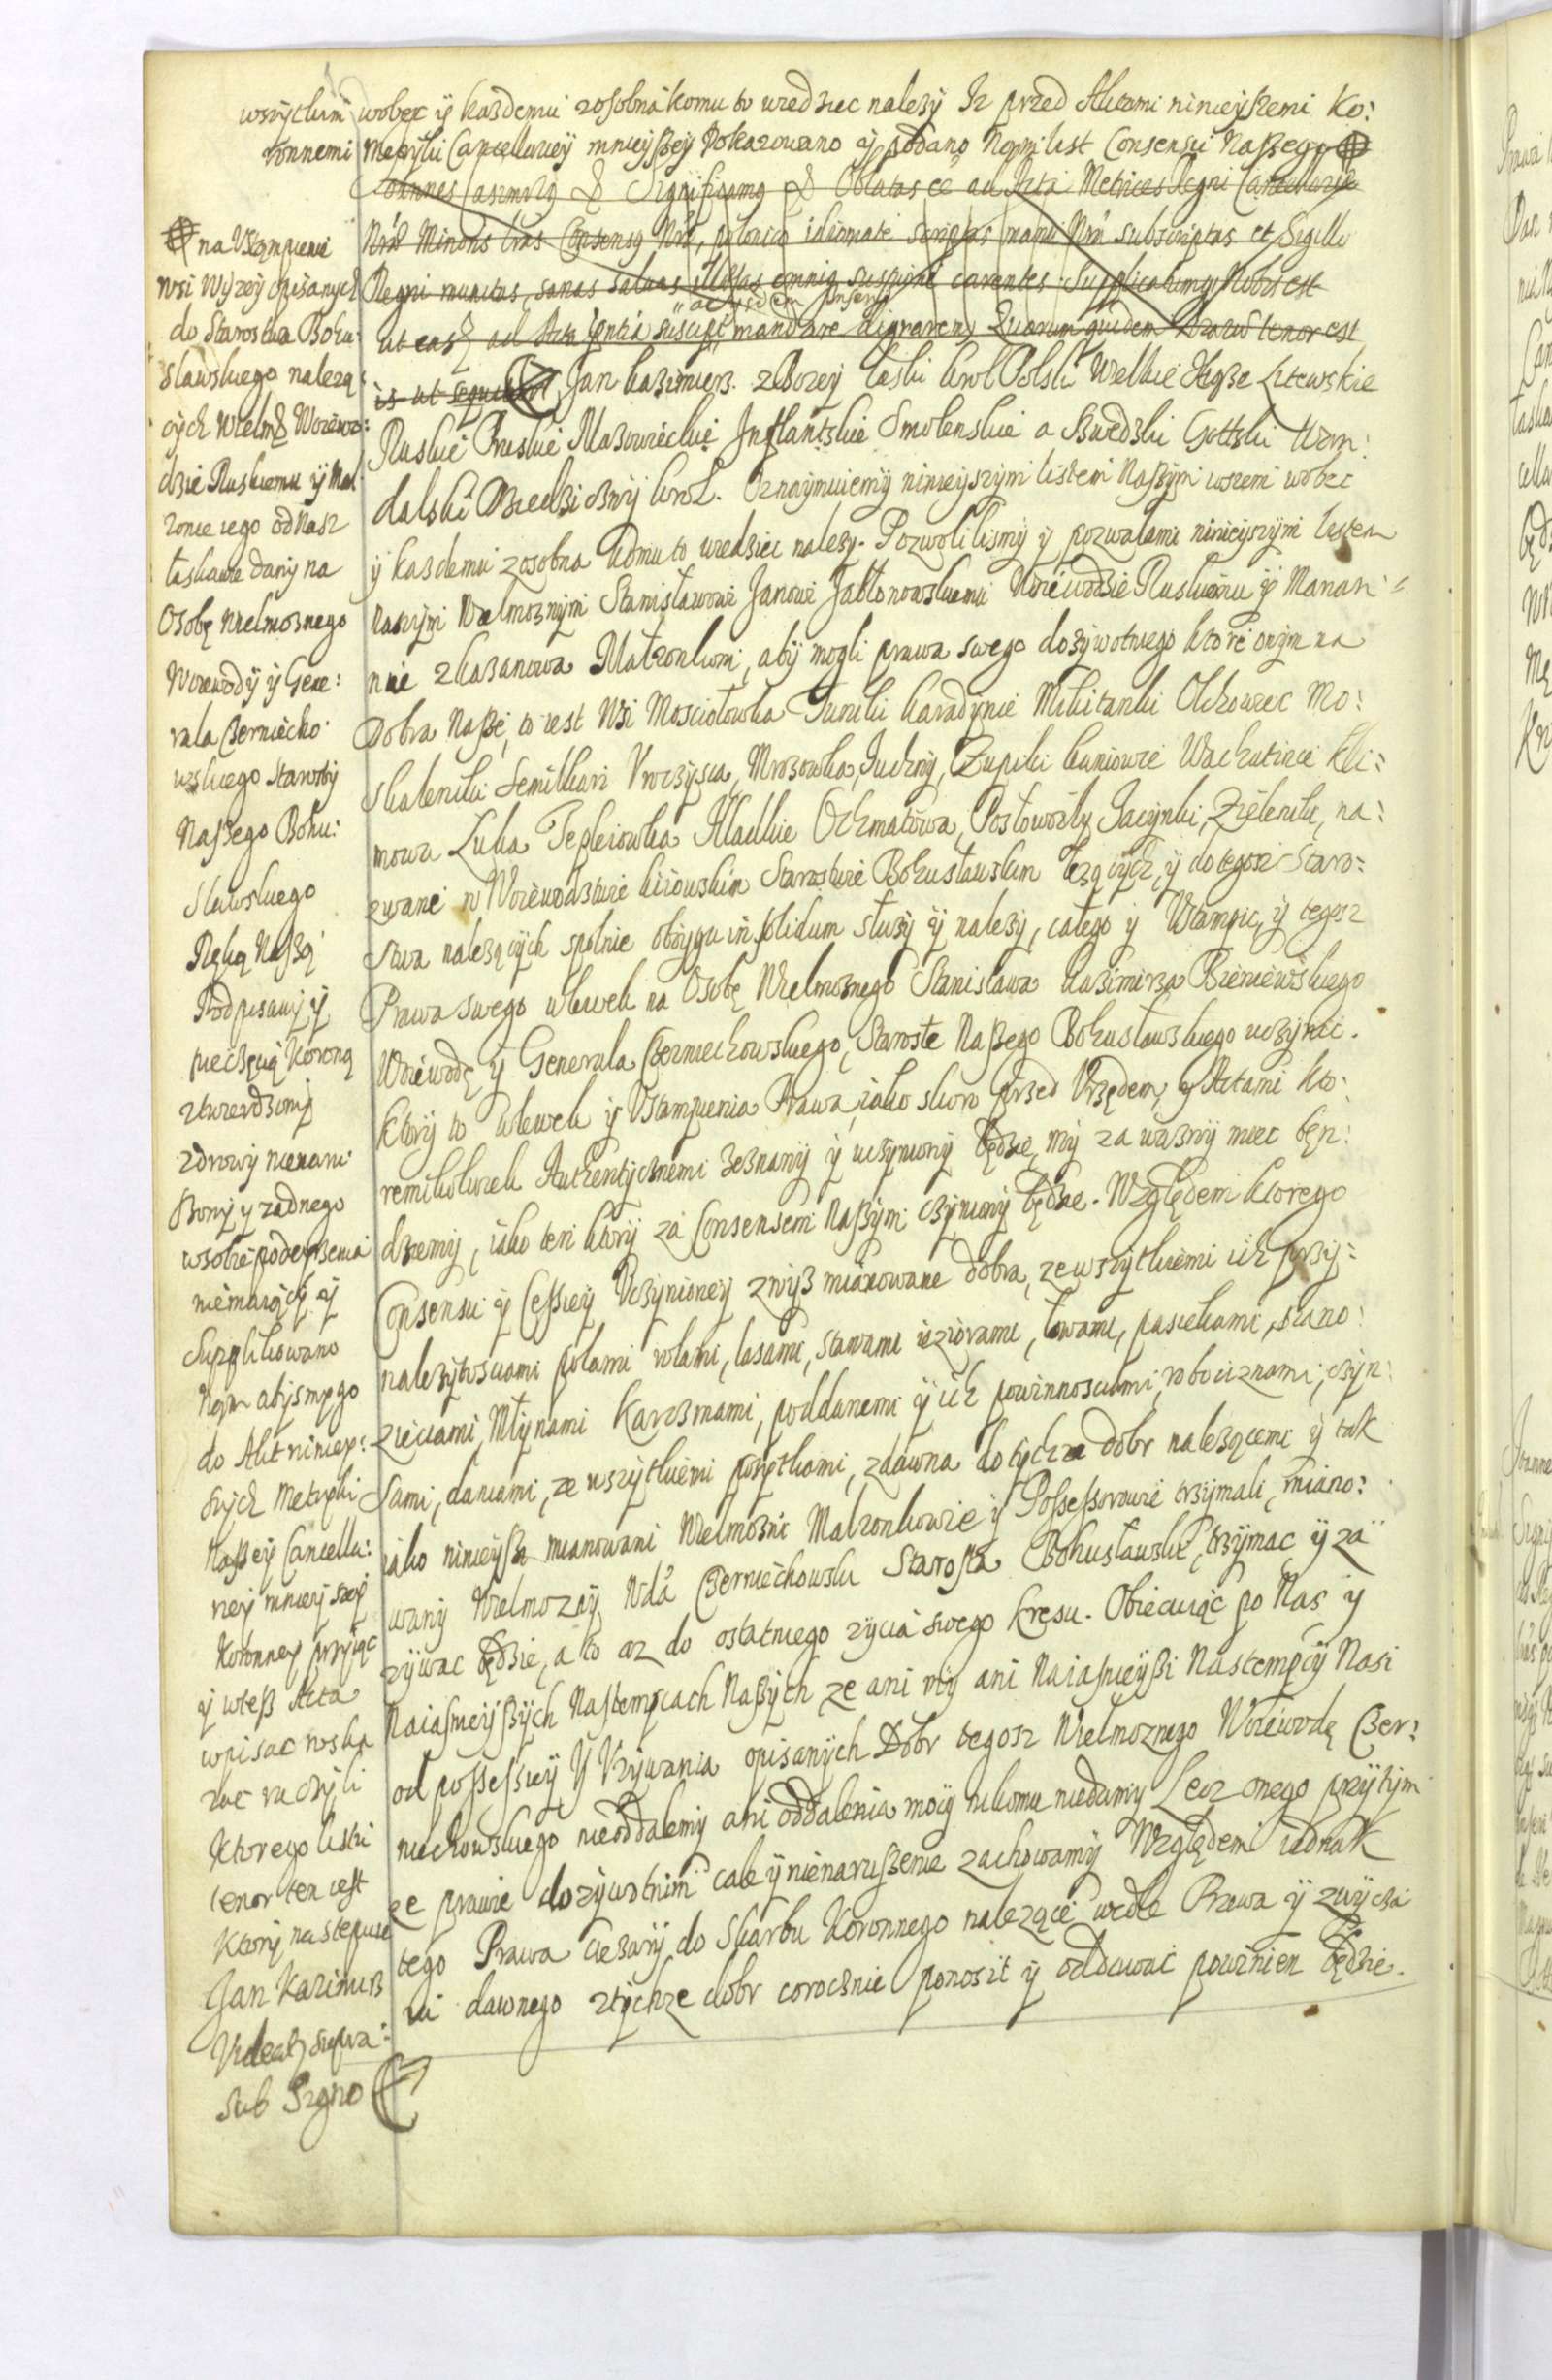 wszytkim wobec y kazdemu zosobna komu to wiedziec nalezy Iz przed Aktami ninieyszemi Ko:
ronnemi Metryki Cancellariey mnieyszey Pokazowano y podano Nam list Consensu Naszego
Joannes Casimirus & Significamus & Oblatas ee ad Acta Metrices Regni Cancellariae
Nrae Minoris lras Consensus Nri, polonico idiomate scriptas manu Nra subscriptas et Sigillo
Regni munitas, sanas salvas illaesas omniq suspicione carentes. Supplicatumq Nobis est
ac ijsdem inserere
ut easdem ad Acta suscipi mandare dignaremur Quarum quidem tenor est
is ut sequitur Jan Kazimierz z Bozey Laski Krol Polski Wielkie Xsze Litewskie
Ruskie Pruskie Mazowieckie Inflantskie Smolenskie a Szwedzki Gottski Wan:
dalski Dziedziczny Krol. Oznaymuiemy ninieyszym listem Naszym wszem wobec
y kazdemu zosobna komu to wiedziec nalezy. Pozwolilismy y pozwalamy ninieyszym listem
Naszym Wielmoznym Stanisławowi Janowi Jabłonowskiemu Woiewodzie Ruskiemu y Marian:
nie z Kazanowa Małzonkom, aby mogli prawa swego dozywotniego ktore onym na
Dobra Nasze, to iest Wsi Mosciołowka Turuki Karadynie Mikitanki Olchowiec Mo:
skalenki Semilkari Vroczysca, Mrozowka, Juchny, Czupiki Kuniowie Wachutince Kli:
mowa Luka Tepleiowka Hladkie Ochmatowa, Posłowozky Jacynki, Zielenki, na:
zwane w Woiewodztwie Kiiowskim Starostwie Bohusławskim lezących, y do tegosz Staro:
stwa nalezących spolnie oboygu in solidum słuzy y nalezy, całego y Vstąmpic, y tegosz
Prawa swego wlewek na Osobę Wielmoznego Stanisława Kazimirza Bieniewskiego
Woiewodę y Generała Czerniechowskiego, Staroste Naszego Bohusławskiego uczynic.
Ktory to wlewek y Vstampienia Prawa, iako skoro przed Vrzędem, y Aktami kto:
remikolwiek Authentycznemi zeznany y uczyniony będzie, my za wazny miec bęn:
dziemy, iako ten ktory za Consensem Naszym czyniony będzie. Względem ktorego
Consensu y Cessiey Vczynioney zwysz mianowane dobra, ze wszytkiemi ich przy:
nalezytosciami polami rolami, lasami, stawami ieziorami, łowami, pasiekami, siano:
zieciami, Młynami Karczmami, poddanemi y ich powinnosciami, robociznami, czyn:
szami, daniami, ze wszytkiemi pozytkami, zdawna do tychze dobr nalezącemi y tak
iako ninieysze mianowani Wielmoznie Malzonkowie y Possessorowie trzymali, miano:
wany Wielmozny Wda Czerniechowski Starosta Bohusławski, trzymac y za
zywac będzie, a to az do ostatniego zycia swego kresu. Obiecuiąc po Nas y
Naiasnieyszych Nastempcach Naszych ze ani my ani Naiasnieyszi Nastempcy Nasi
od possessiey y Vzywania opisanych Dobr tegosz Wielmoznego Woiewodę Czer:
niechowskiego nieoddalemy ani oddalenia mocy nikomu niedamy Lecz onego przytym
ze prawie dozywotnim cale y nienaruszenie zachowamy Względem iednak
tego Prawa ciezary do Skarbu Koronnego nalezące wedle Prawa y zwycza
iu dawnego ztychze dobr corocznie ponosit y oddawac powinien będzie.
na Vstąmpienie
wsi Wyzey opisanych
do Starostwa Bohu:
sławskiego nalezą:
cych Wielmo Woiewo:
dzie Ruskiemu y Mał
zonce iego od Nasz
łaskawie dany na
Osobę Wielmoznego
Woiewody y Gene:
rała Czerniecho:
wskiego Starosty
Naszego Bohu:
sławskiego
Ręką Naszą
Podpisany y
pieczęcią Koroną
ztwierdzony
zdrowy nienaru:
szony y zadnego
wsobie podeyrzenia
niemaiący y
Supplikowano
Nam abysmy go
do Akt nieniey:
szych Metryki
Naszey Cancella:
riey mnieyszey
Koronney przyiąc
y wtesz Acta
wpisac roska
zac raczyli
Ktorego listu
tenor ten iest
Ktory nastepuie
Jan Kazimirz
Videat supra:
Sub Signo